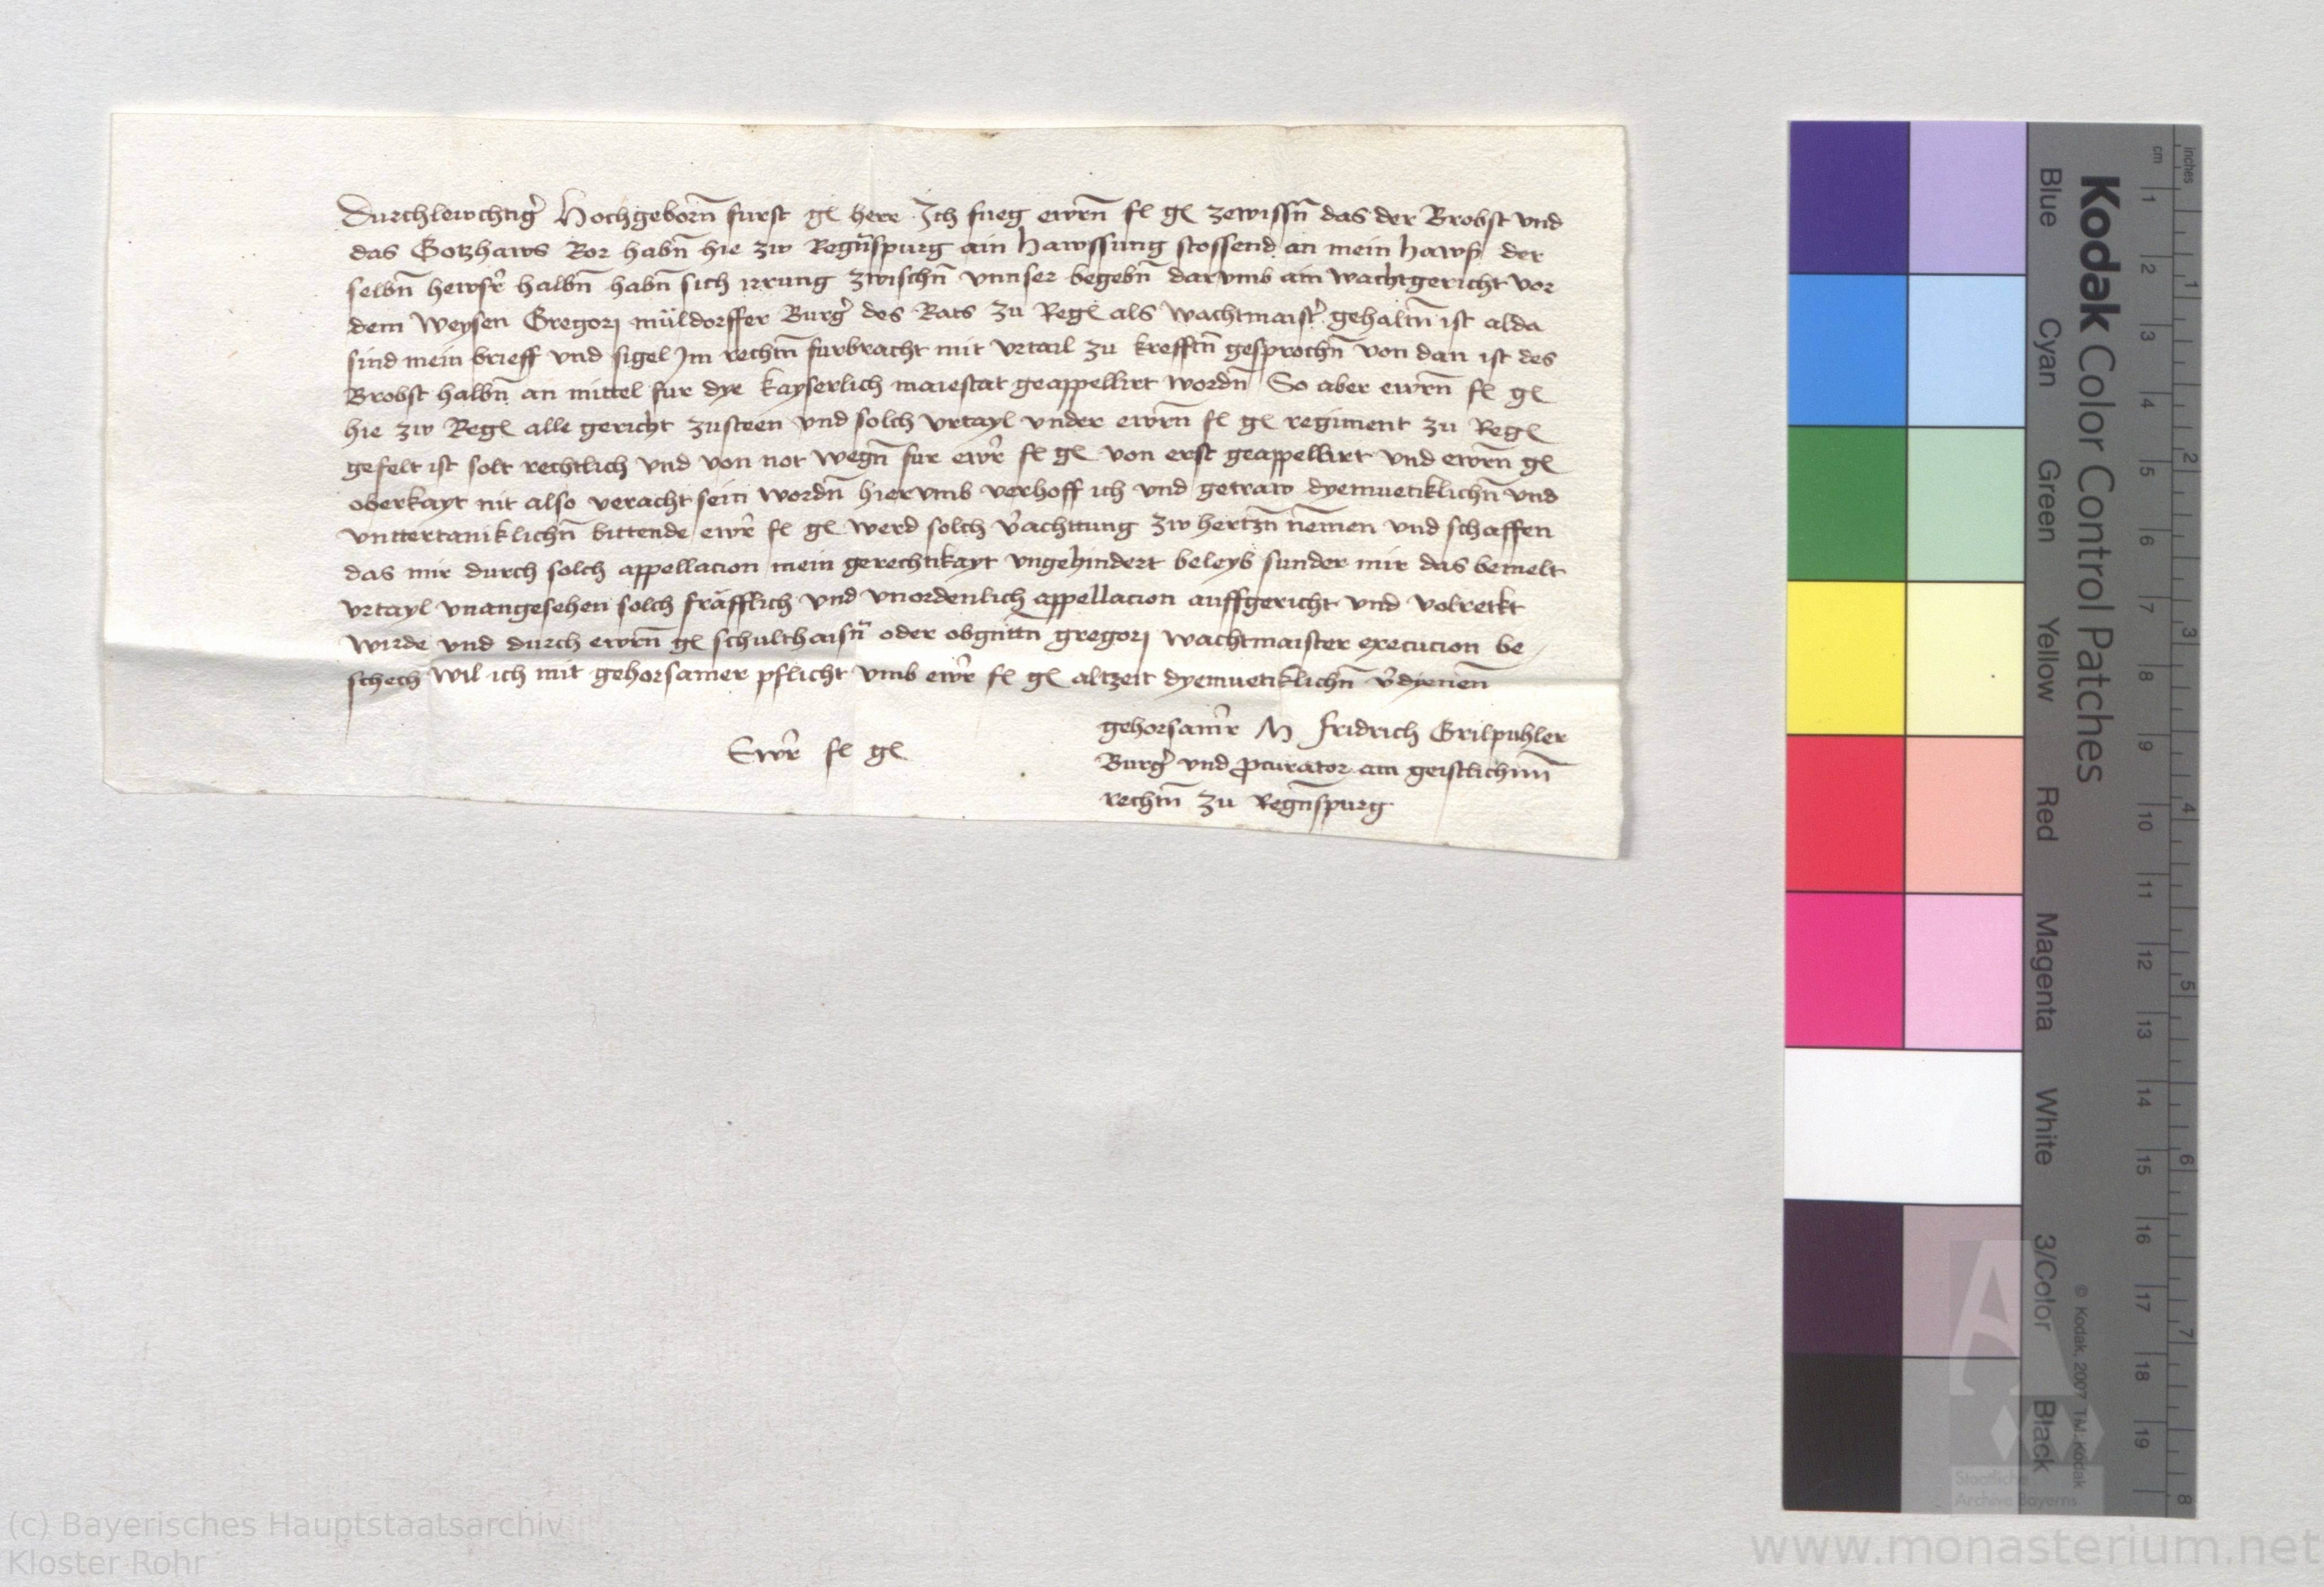 Durchlewchtig̉ Hochgeborñ furst gł herr Ich fueg ewrñ fł gł zewissñ das der Brobst vnd
das Gotzhaws Ror habñ hie zw Regñspurg ain hawssung stossend an mein haws der
selbñ hewsr̃ halbñ habñ sich irrung zwischñ vnnser begebñ darvmb am wachtgericht vor
dem Weysen Gregorj müldorffer Burg̉ des Rats zu Regł als wachtmaist̉ gehaltñ ist alda
sind mein brieff vnd sigel Im rechtñ furbracht mit vrtail zu krefftñ gesprochñ von dan ist des
Brobst halbñ an mittel fur dye kayserlich maiestat geappellirt wordñ So aber ewrñ fł gł
hie zw Regł alle gericht zusteen vnd solch vrtayl vnder ewrñ fł gł regiment zu Regł
gefelt ist solt rechtlich vnd von not wegñ fur ewr̃ fł gł von erst geappellirt vnd ewrñ gł
oberkayt nit also veracht sein wordñ hiervmb verhoff ich vnd getraw dyemuetiklichñ vnd
vnttertaniklichñ bittende ewr̃ fł gł werd solch v̉achttung zw hertzñ nemen vnd schaffen
das mir durch solch appellacion mein gerechtikayt vngehindert beleyb sunder mir das bemelt
vrtayl vnangesehen solch fräfflich vnd vnordenlich appellacion auffgericht vnd volreckt
wirde vnd durch ewrñ gł schulthaisñ oder obgnttñ gregorj wachtmaister execucion be
schech wil ich mit gehorsamer pflicht vmb ewr̃ fł gł altzeit dyemuetiklichñ v̉dyenen
Ewr̃ fł gł
gehorsamr̃ M fridrich Grilpuhler
Burg̉ vnd ꝓcurator am geistlichnñ
rechtñ zu Regñspurg
Kodak Color Control Patches
Blue Cyan Green Yellow Red Magenta White 3/Color Black
© Kodak, 2007 TM: Kodak
cm 1 2 3 4 5 6 7 8 9 10 11 12 13 14 15 16 17 18 19
inches 1 2 3 4 5 6 7 8
Staatliche
Archive Bayerns
(c) Bayerisches Hauptstaatsarchiv
Kloster Rohr
www.monasterium.net